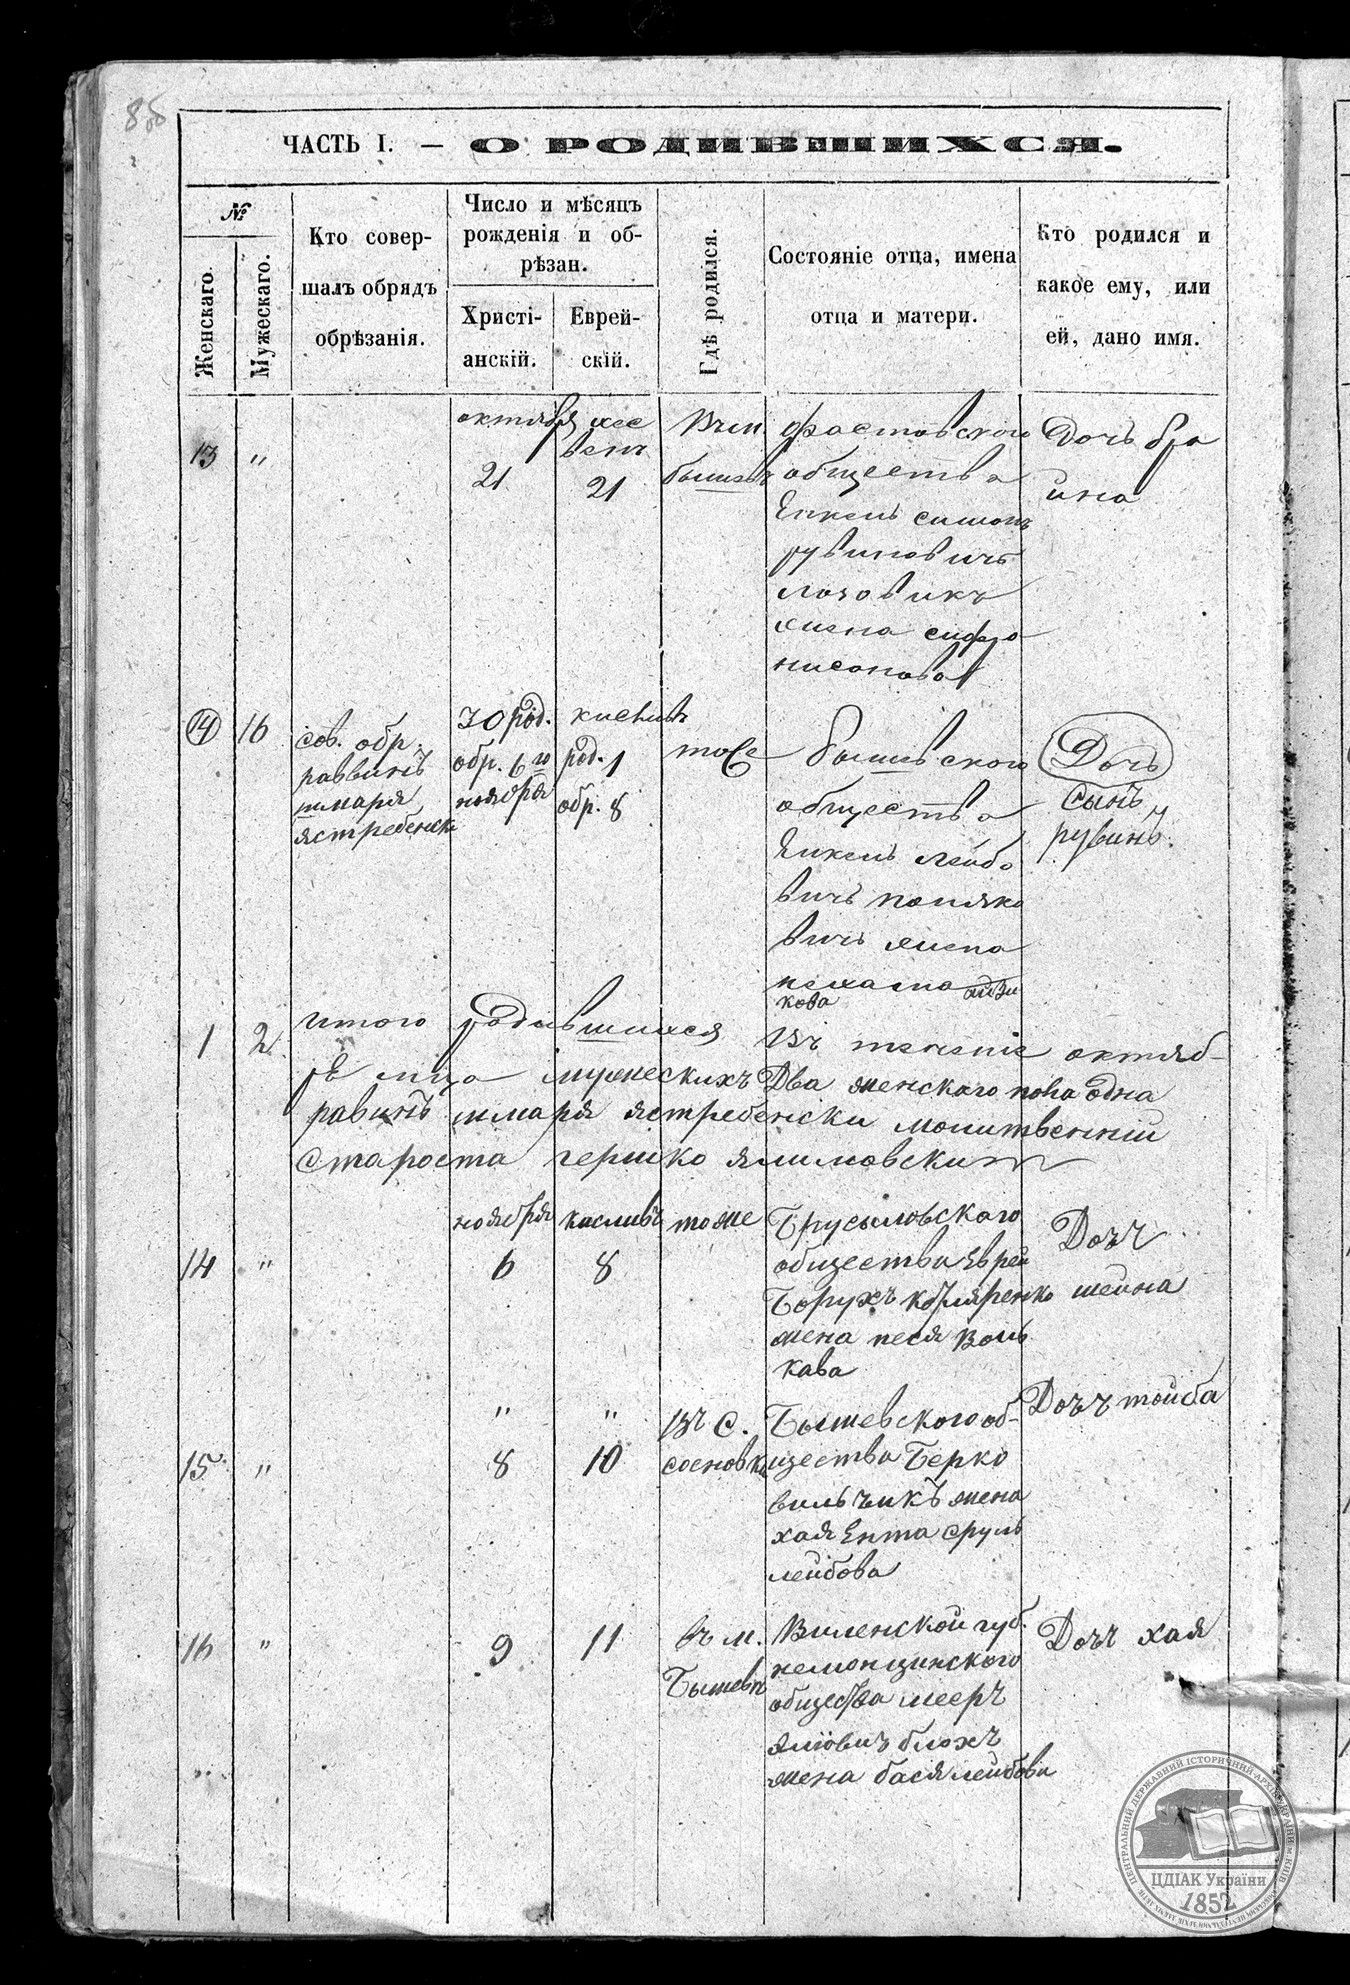 8об
ЧАСТЬ I. — О РОДИВШИХСЯ.
№
Женскаго.
Мужескаго.
Кто совер-
шалъ обрядъ
обрѣзанія.
Число и мѣсяцъ
рожденія и об-
рѣзан.
Христі-
анскій.
Еврей-
скій.
Гдѣ родился.
Состояніе отца, имена
отца и матери.
Кто родился и
какое ему, или
ей, дано имя.
13
"
октября
21
хес
венъ
21
Въ м.
бышевъ
фастовского
общества
Енкель симонъ
рувиновичъ
лозовикъ
жена сифра
нисонова
Дочь бра
ина
14
16
сов. обр.
раввинъ
шмаря
ястребенск
30 род.
обр. 6го
ноября
кисливъ
род. 1
обр. 8
тоже
бышевского
общества
Енкель лейбо
вичъ поляко
вичъ жена
нехама
кова
Дочь
Сынъ
рувинъ.
1
2
итого родившихся въ течение октяб-
ре лица мужескихъ Два женскаго пола одна
равинъ шмаря ястребенски молитвенний
Староста гершко ялимовски
14
"
ноября
6
кисливъ
8
тоже
Брусыловскаго
общества Еврей
Борухъ котляренко
жена песя воль
кава
Дочъ
шейна
15
"
"
8
"
10
въ с.
сосновка
Бышевского об-
щества Берко
вильчикъ жена
хая Ента сруль
лейбова
Дочъ тойба
16
"
9
11
въ м.
Бышевъ
Виленской губ.
общества мееръ
блохъ
жена бася лейбова
Дочъ хая
ЦЕНТРАЛЬНИЙ ДЕРЖАВНИЙ ІСТОРИЧНИЙ АРХІВ УКРАЇНИ, м. КИЇВ
ЦДІАК України
1852